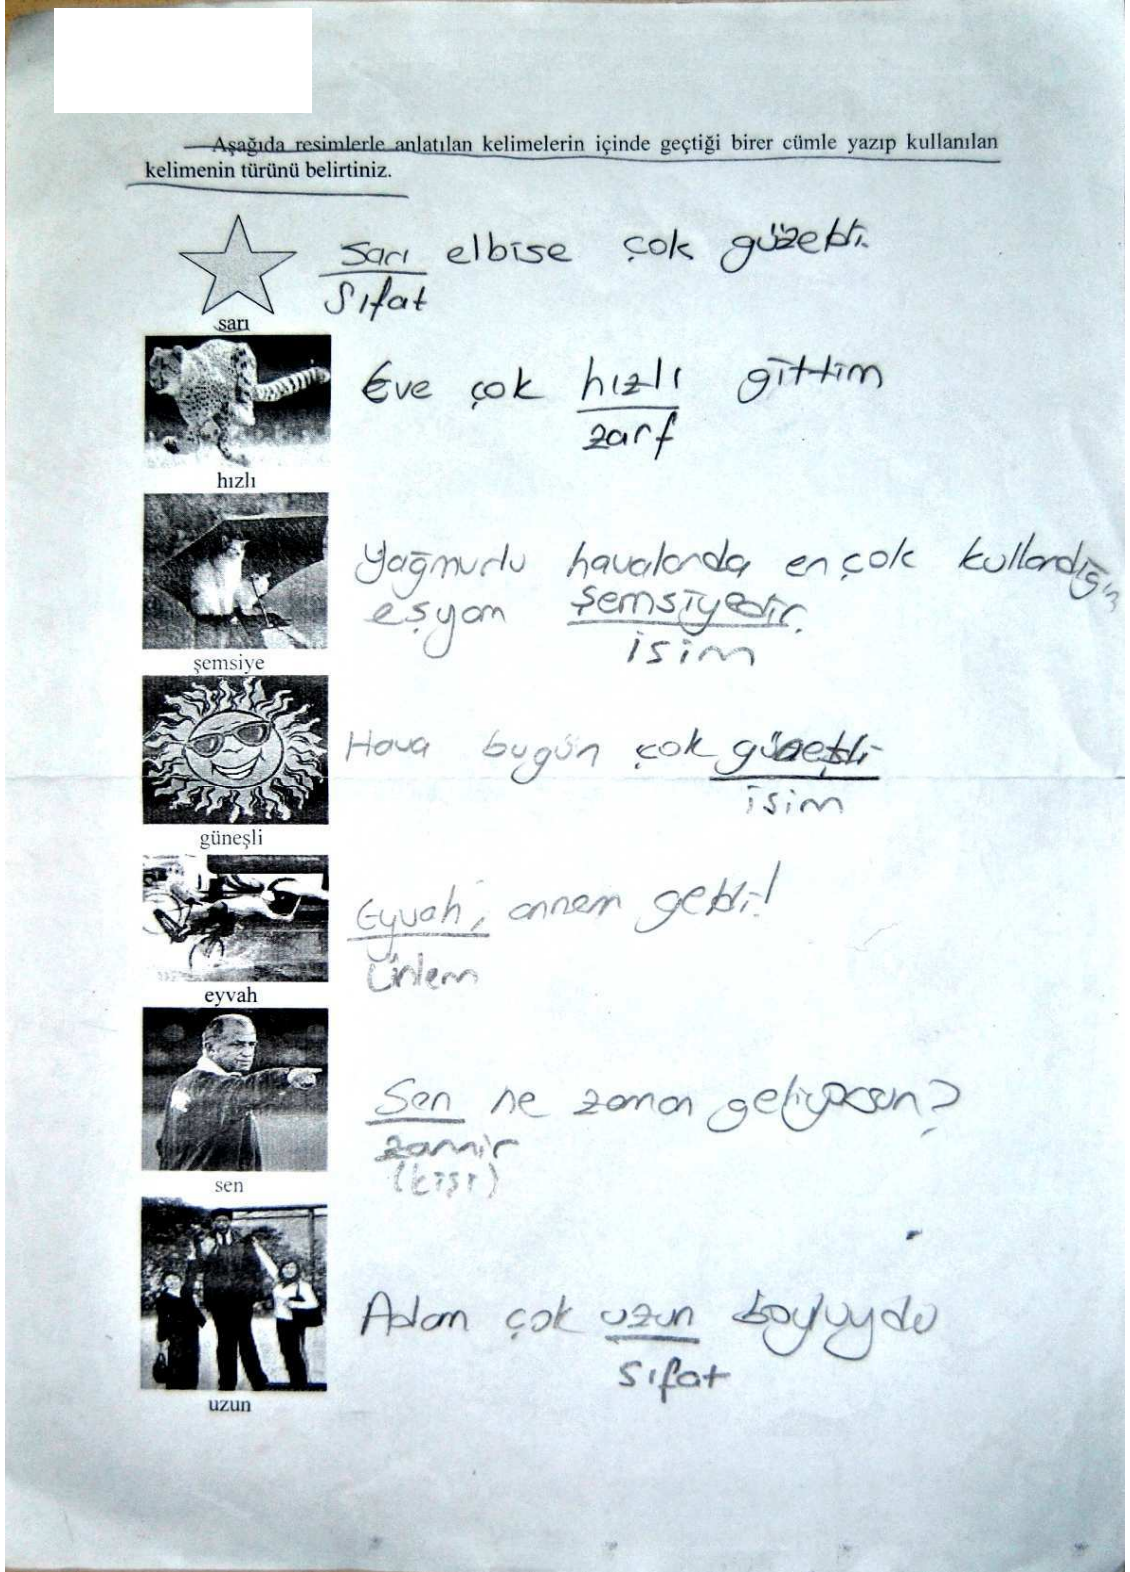 Aşağıda resimlerle anlatılan kelimelerin içinde geçtiği birer cümle yazıp kullanılan
kelimenin türünü belirtiniz.
Sarı elbise çok güzeldi.
Sıfat
sarı
Eve çok hızlı gittim
zarf
hızlı
Yağmurlu havalarda en çok kullandığım
eşyam şemsiyedir.
isim
şemsiye
Hava bugün çok güneşli
isim
güneşli
Eyvah, annem geldi!
Ünlem
eyvah
Sen ne zaman geliyosun?
zamir
(kişi)
sen
Adam çok uzun boyluydu
sıfat
uzun